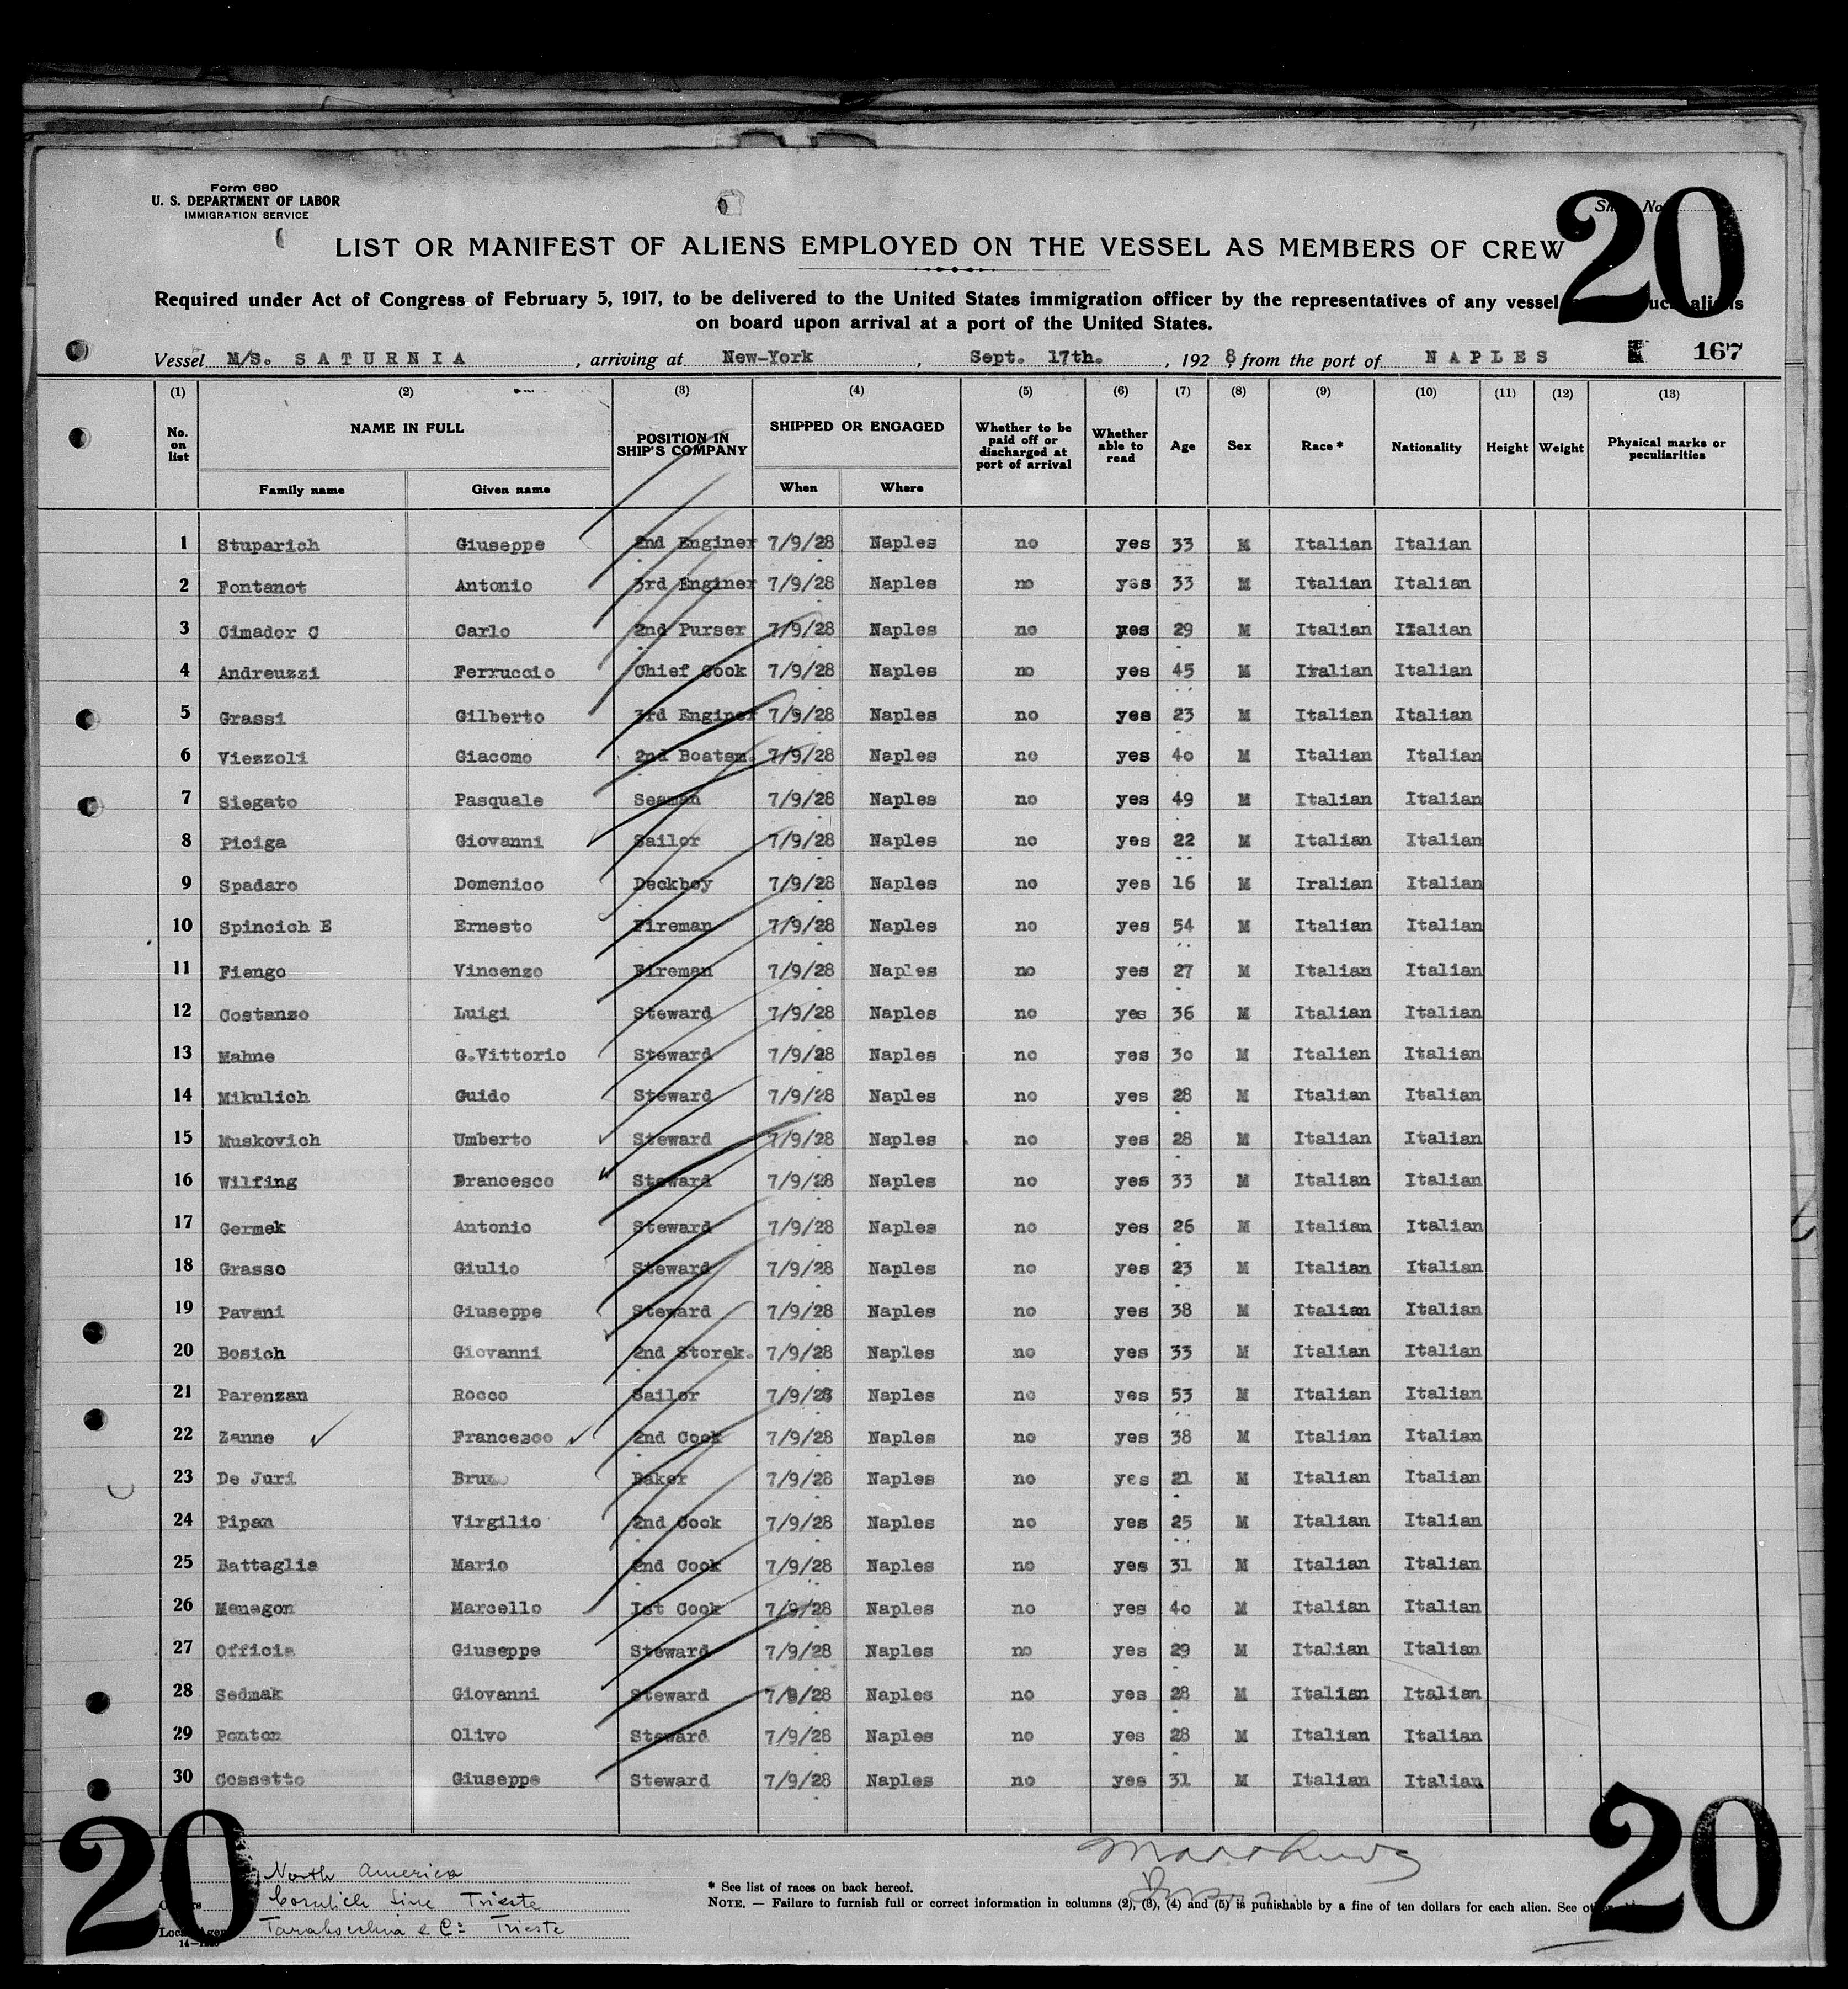 Form 680
U. S. DEPARTMENT OF LABOR
IMMIGRATION SERVICE
20
LIST OR MANIFEST OF ALIENS EMPLOYED ON THE VESSEL AS MEMBERS OF CREW
Required under Act of Congress of February 5, 1917, to be delivered to the United States immigration officer by the representatives of any vessel
on board upon arrival at a port of the United States.
Vessel M/S. SATURNIA , arriving at New-York , Sept. 17th. , 1928, from the port of NAPLES 167
(1) (2) (3) (4) (5) (6) (7) (8) (9) (10) (11) (12) (13)
No. on list NAME IN FULL Family name Given name POSITION IN SHIP'S COMPANY SHIPPED OR ENGAGED When Where Whether to be paid off or discharged at port of arrival Whether able to read Age Sex Race * Nationality Height Weight Physical marks or peculiarities
1 Stuparich Giuseppe 2nd Enginer 7/9/28 Naples no yes 33 M Italian Italian
2 Fontanot Antonio 3rd Enginer 7/9/28 Naples no yes 33 M Italian Italian
3 Cimador C Carlo 2nd Purser 7/9/28 Naples no yes 29 M Italian Italian
4 Andreuzzi Ferruccio Chief Cook 7/9/28 Naples no yes 45 M Italian Italian
5 Grassi Gilberto 3rd Enginer 7/9/28 Naples no yes 23 M Italian Italian
6 Viezzoli Giacomo 2nd Boatsm. 7/9/28 Naples no yes 40 M Italian Italian
7 Siegato Pasquale Seaman 7/9/28 Naples no yes 49 M Italian Italian
8 Piciga Giovanni Sailor 7/9/28 Naples no yes 22 M Italian Italian
9 Spadaro Domenico Deckboy 7/9/28 Naples no yes 16 M Iralian Italian
10 Spincich E Ernesto Fireman 7/9/28 Naples no yes 54 M Italian Italian
11 Fiengo Vincenzo Fireman 7/9/28 Naples no yes 27 M Italian Italian
12 Costanzo Luigi Steward 7/9/28 Naples no yes 36 M Italian Italian
13 Mahne G.Vittorio Steward 7/9/28 Naples no yes 30 M Italian Italian
14 Mikulich Guido Steward 7/9/28 Naples no yes 28 M Italian Italian
15 Muskovich Umberto Steward 7/9/28 Naples no yes 28 M Italian Italian
16 Wilfing Francesco Steward 7/9/28 Naples no yes 33 M Italian Italian
17 Germek Antonio Steward 7/9/28 Naples no yes 26 M Italian Italian
18 Grasso Giulio Steward 7/9/28 Naples no yes 23 M Italian Italian
19 Pavani Giuseppe Steward 7/9/28 Naples no yes 38 M Italian Italian
20 Bosich Giovanni 2nd Storek. 7/9/28 Naples no yes 33 M Italian Italian
21 Parenzan Rocco Sailor 7/9/28 Naples no yes 53 M Italian Italian
22 Zanne Francesco 2nd Cook 7/9/28 Naples no yes 38 M Italian Italian
23 De Juri Baker 7/9/28 Naples no yes 21 M Italian Italian
24 Pipan Virgilio 2nd Cook 7/9/28 Naples no yes 25 M Italian Italian
25 Battaglia Mario 2nd Cook 7/9/28 Naples no yes 31 M Italian Italian
26 Menegon Marcello Ist Cook 7/9/28 Naples no yes 40 M Italian Italian
27 Officia Giuseppe Steward 7/9/28 Naples no yes 29 M Italian Italian
28 Sedmak Giovanni Steward 7/9/28 Naples no yes 28 M Italian Italian
29 Ponton Olivo Steward 7/9/28 Naples no yes 28 M Italian Italian
30 Cossetto Giuseppe Steward 7/9/28 Naples no yes 31 M Italian Italian
20
20
North America
Cosulich Line Trieste
Tarabocchia e C: Trieste
* See list of races on back hereof.
NOTE. — Failure to furnish full or correct information in columns (2), (3), (4) and (5) is punishable by a fine of ten dollars for each alien. See